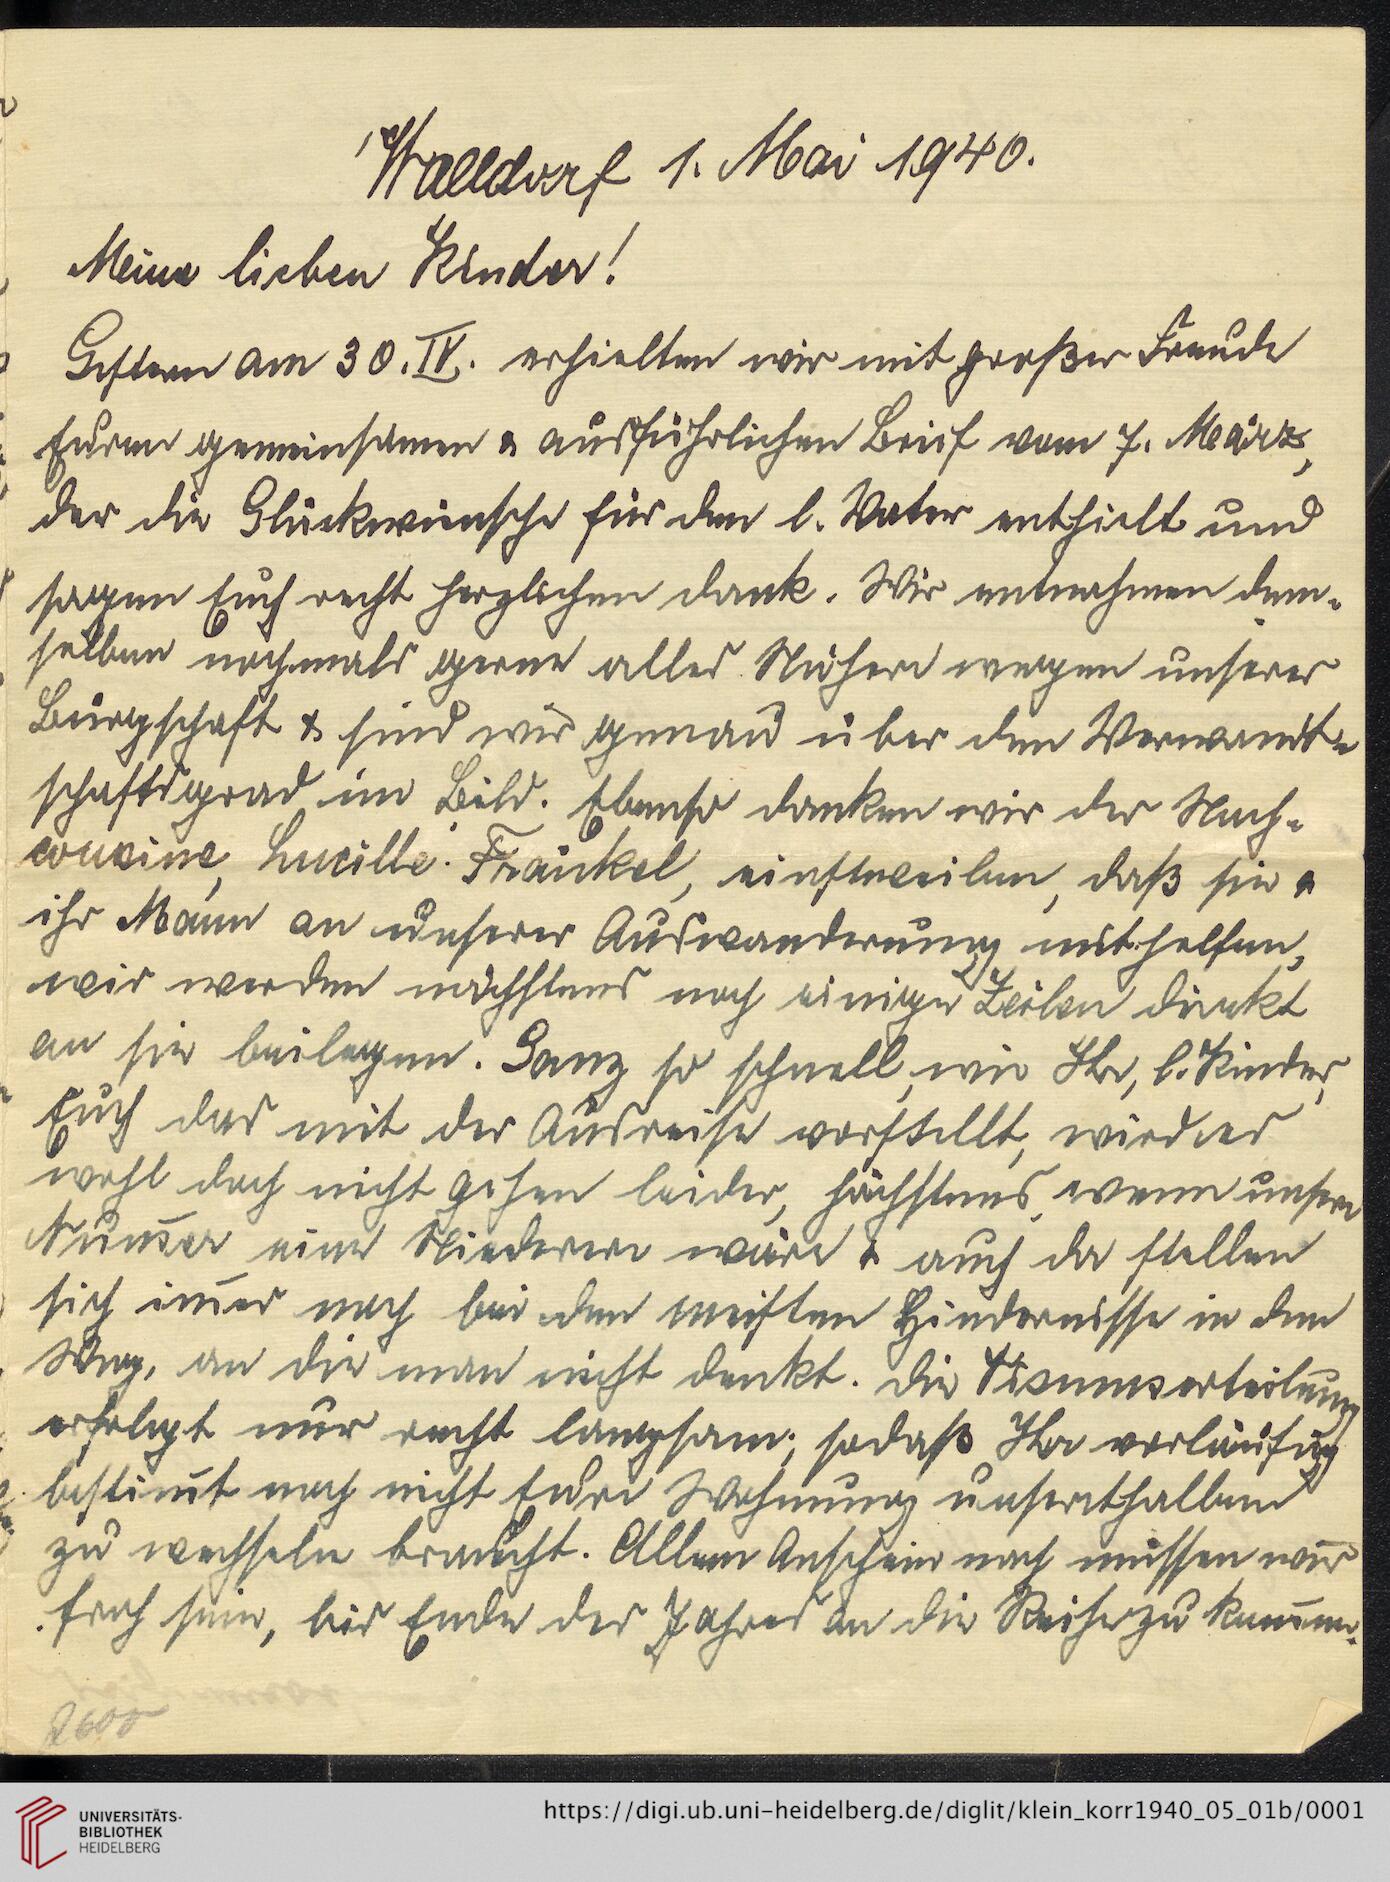 Walldorf 1. Mai 1940.
Meine lieben Kinder!
Gestern am 30. IV. erhielten wir mit großer Freude
Euren gemeinsamen & ausführlichen Brief vom 7. März,
der die Glückwünsche für den l. Vater enthielt und
sagen Euch recht herzlichen Dank. Wir entnahmen dem-
selben nochmals gerne alles Nähere wegen unserer
Bürgschaft & sind wir genau über den Verwandt-
schaftsgrad im Bild. Ebenso danken wir der Nach-
cousine, Lucille Fränkel, einstweilen, daß sie &
ihr Mann an unserer Auswanderung mithelfen,
wir werden nächstens noch einige Zeilen direkt
an sie beilegen. Ganz so schnell, wie Ihr, l. Kinder,
Euch das mit der Ausreise vorstellt, wird es
wohl doch nicht gehen leider, höchstens, wenn unsere
Num̄er eine Niederere wäre & auch da stellen
sich im̄er noch bei den meisten Hindernisse in den
Weg, an die man nicht denkt. Die Visumserteilung
erfolgt nur recht langsam, sodaß Ihr vorläufig
bestim̄t noch nicht Eure Wohnung unserthalben
zu wechseln braucht. Allem Anschein nach müssen wir
froh sein, bis Ende des Jahres an die Reihe zu kom̄en.
2600
UNIVERSITÄTS-
BIBLIOTHEK
HEIDELBERG
https://digi.ub.uni-heidelberg.de/diglit/klein_korr1940_05_01b/0001